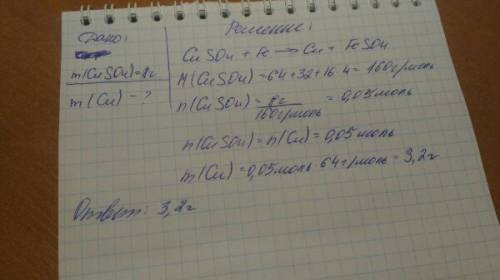 Дано:
m(CuSO4)=8г
m(Cu) - ?
Решение:
CuSO4 + Fe → Cu + FeSO4
M(CuSO4) = 64+32+16·4 = 160г/моль
n(CuSO4) = 8г / 160г/моль = 0,05моль
n(CuSO4) = n(Cu) = 0,05моль
m(Cu) = 0,05моль · 64г/моль = 3,2г
Ответ: 3,2г